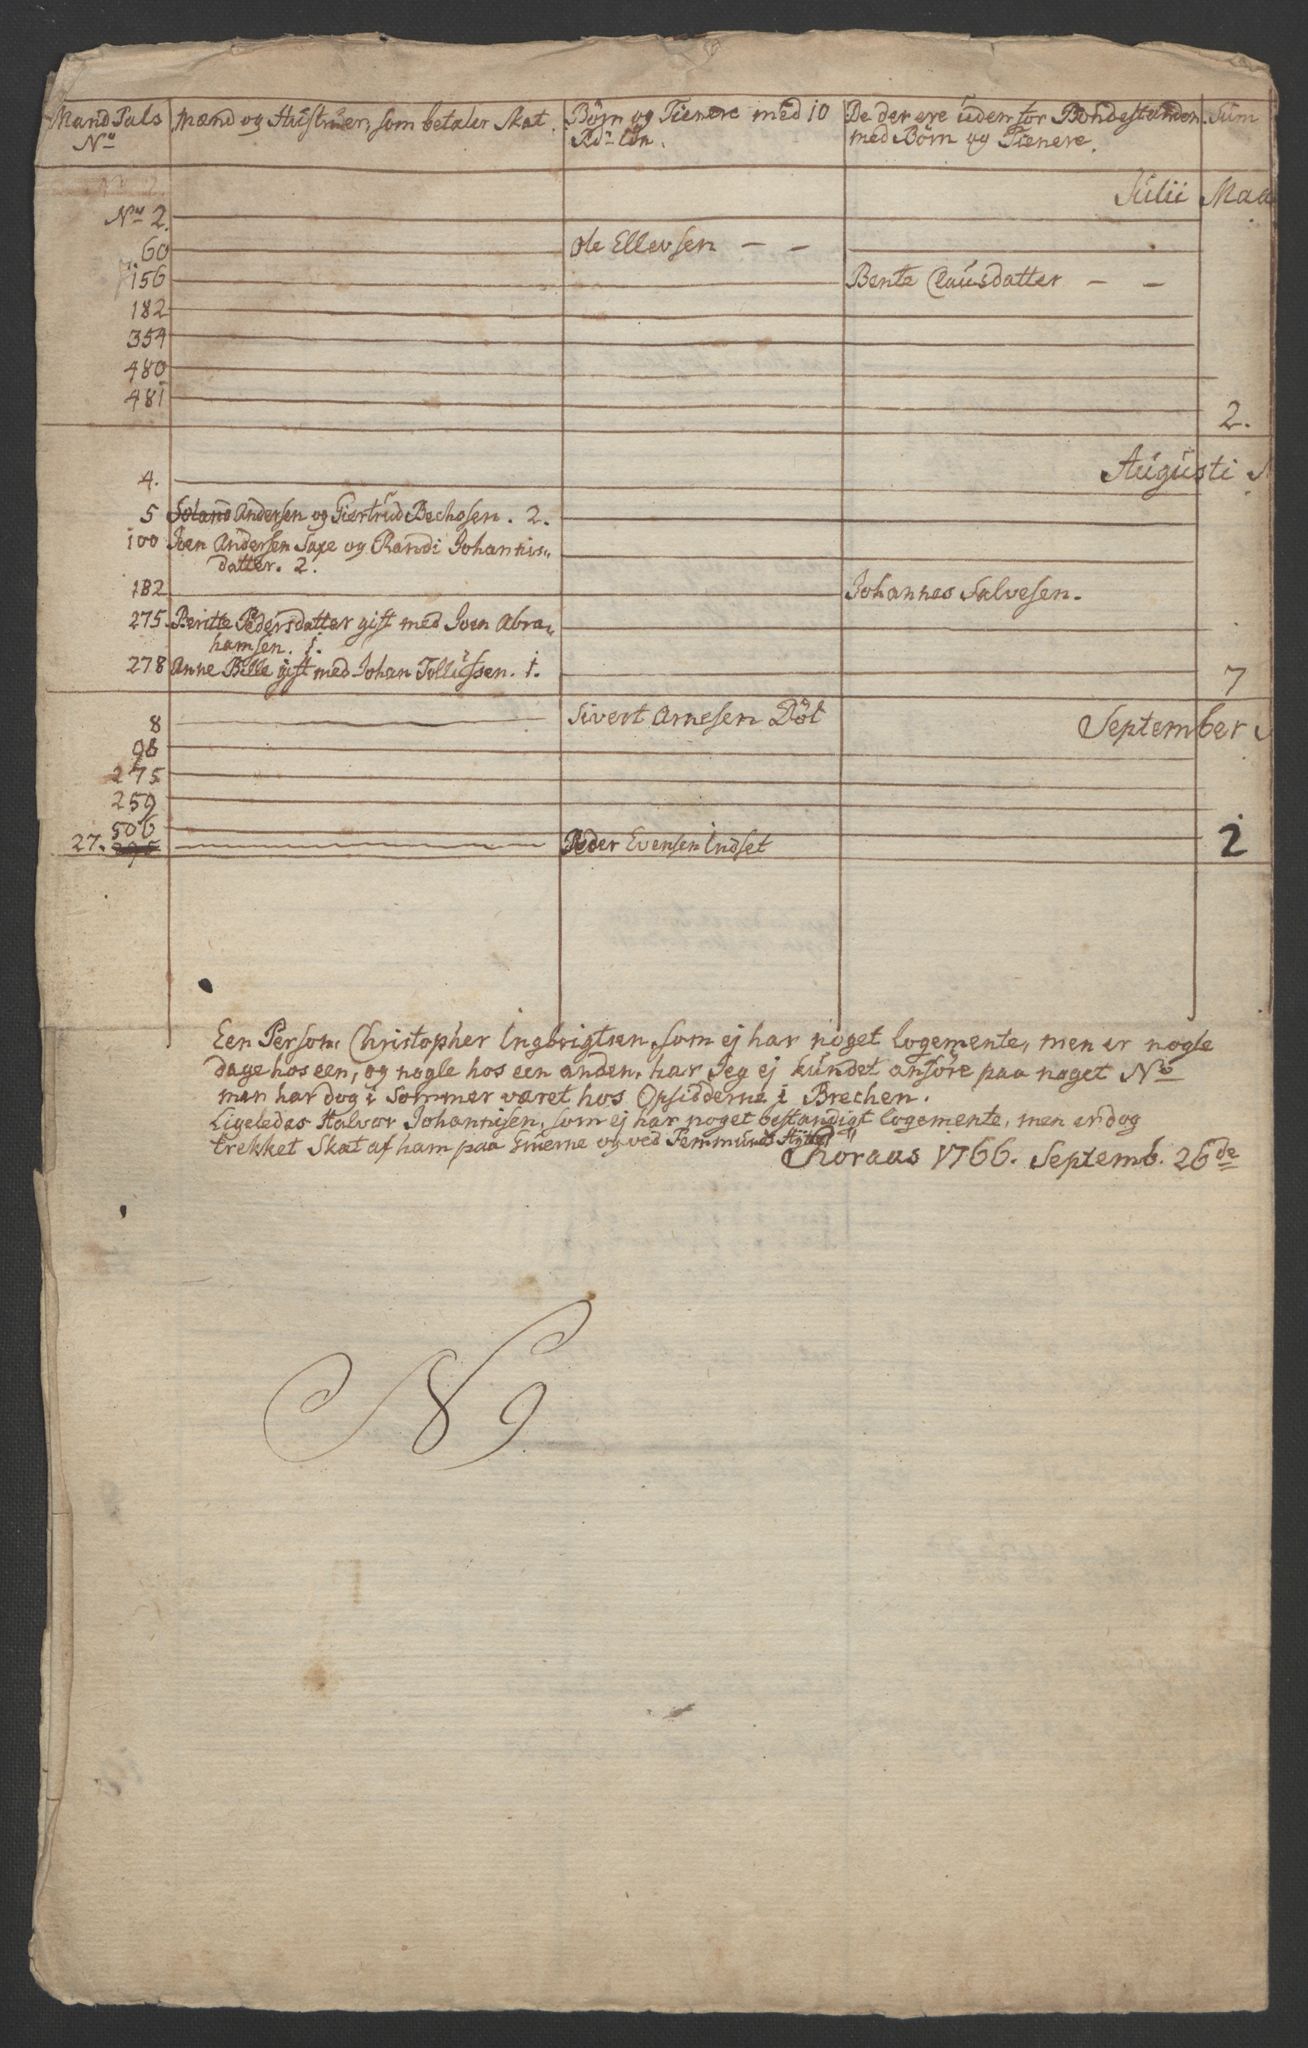 Mand Tals Mænd og Hustruer, som betaler Skat. Børn og Tienere med 10 De der ere uden for Bondestanden Sum
No Rdr løn. med Børn og Tienere.
Julii Maa
No 2.
60 Ole Ellevsen — —
156 Bente Clausdatter — —
182
354
480
481
2.
Augusti
4.
5 Andersen og Giertrud Bechosen. 2.
100 Joen Andersen Saxe og Randi Johannis-
datter. 2.
182 Johannes Salvesen.
275 Beritte Pedersdatter gift med Joen Abra-
hamsen. 1.
278 Anne Bille gift med Johan Tollussen. 1.
7
8 Sivert Arnesen Döl September
98
275
259
506
27. Peder Evensen Indset 2
Een Person, Christopher Ingbrigtsen, som ej har noget logemente, men er nogle
dage hos een, og nogle hos een anden, har Jeg ej kundet anföre paa noget No
men har dog i Sommer været hos Opsidderne i Brechen.
Ligeledes Halvor Johannisen, som ej har noget bestandigt logemente, men er dog
trekket Skat af ham paa Gruerne og ved Femmunds Hytte
Röraas 1766. Septemb. 26de
N 9